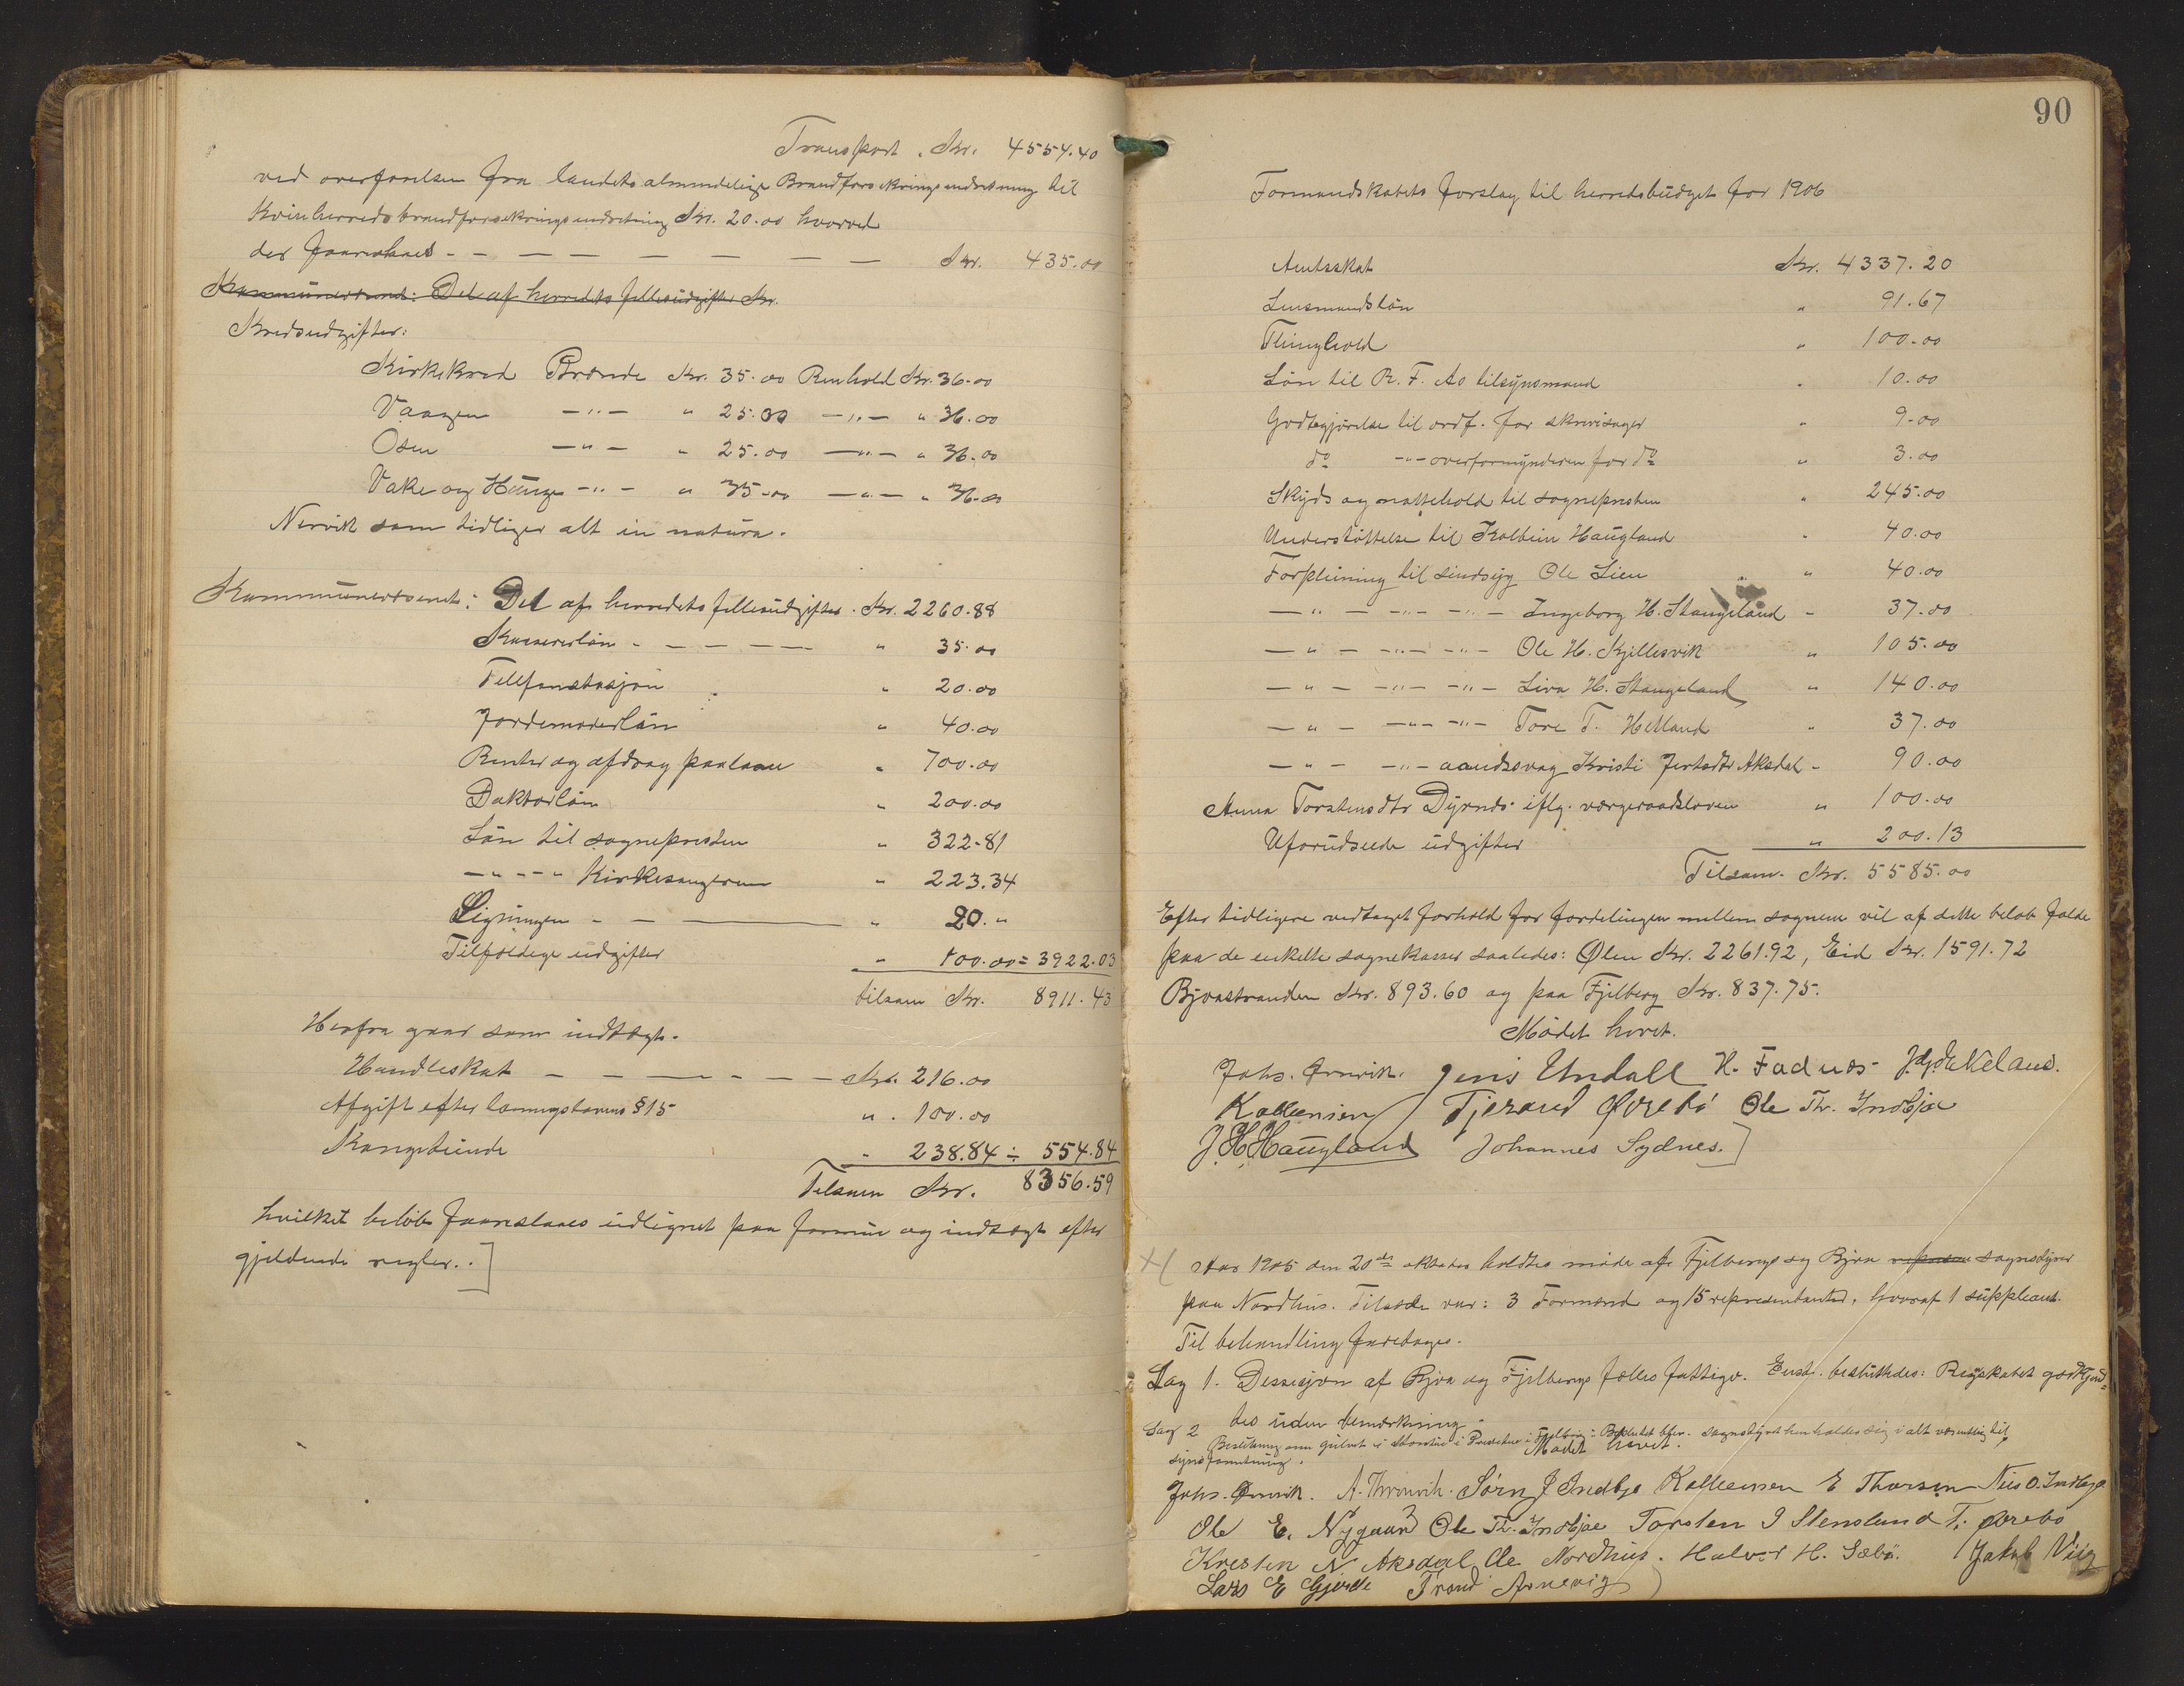 Transport . Kr. 4554.40
ved overførelsen fra landets almindelige Brandforsikringsindretning til
Kvinherreds brandforsikringsindretning Kr. 20.00 hvorved
der - - — — — — — — Kr. 435.00
Kommunevesenet: Del af herredets fellesudgifter Kr.
Kredsudgifter:
Kirkekred Brænde Kr. 35.00 Renhold Kr. 36.00
Vaagen —"— " 25.00 —"— " 36.00
Osen —"— " 25.00 —"— " 36.00
Vake og Hauge —"— " 35.00 —"— " 36.00
Nervik som tidliger alt in natura.
Kommunevesenet: Del af herredets fellesudgifter . Kr. 2260.88
Kassererløn - — — — — " 35.00
Telefonstasjon " 20.00
Jordemoderløn " 40.00
Renter og afdrag paa laan " 700.00
Doktorløn " 200.00
Løn til sognepresten " 322.81
—"—"— Kirkesangeren " 223.34
Ligningen - — ——— " 20."
Tilfeldige udgifter " 100.00 = 3922.03
tilsam Kr. 8911.43
Herfra gaar som indtægt.
Handleskat — — — — — Kr. 216.00
Afgift efter lovens § 15 " . 100.00
Kongetiende " 238.84 ÷ 554.84
Tilsam Kr. 8356.59
hvilket beløb foreslaaes udlignet paa formue og indtægt efter
gjeldende regler. .]
90
Formandskabets forslag til herredsbudget for 1906
Amtsskat Kr. 4337.20
Lensmandsløn " 91.67
Thinghold " 100.00
Løn til R. F. As tilsynsmand " 10.00
Godtegjørelse til ordf. for skrivesager " 9.00
do —"— overformynderen for do " 3.00
Skyds og nattehold til sognepresten " 245.00
Understøttelse til Kolbein Haugland " 40.00
Forpleining til sindsyg Ole Lien " 40.00
—"— —"— —"— Ingeborg H. Stangeland " 37.00
—"— —"— —"— Ole H. Kjellesvik " 105.00
—"— —"— —"— Siva H. Stangeland " 140.00
—"— —"— —"— Tore T. Helland " 37.00
—"— —"— aandssvag Kristi Aksdal " 90.00
Anna Torstensdtr Dyrnes iflg. vergeraadsloven " 100.00
Uforudseede udgifter " 200.13
Tilsam. Kr. 5585.00
Efter tidligere vedtaget forhold for fordelingen mellem sognene vil af dette beløb falde
paa de enkelte sognekasser saaledes: Ølen Kr. 2261.92, Eid Kr. 1591.72
Bjoastranden Kr. 893.60 og paa Fjelberg Kr. 837.75.
Mødet hevet.
Johs. Ørnvik. Jens Undall H. Fadnes
Kallevensen Tjerand Ørebø Ole Th. Indbjø
J. H. Haugland Johannes Sydnes.]
Aar 1905 den 20de oktober holdtes møde af Fjelbergs og Bjoa sognestyrer
paa Nordhus. Tilstede var: 3 Formænd og 15 representanter, hvoraf 1 suppleant.
Til behandling foretages.
Sag 1. Dessisjon af Bjoa og Fjelbergs felles fattigv. Enst. besluttedes: Regskabet godkjend=
tes uden bemerkning.
Sag 2 Beslutning om gulvet i i Fjelberg: sognestyret henholder sig i alt vesentlig til
Mødet hevet.
Johs. Ørnvik. A. Thronvik. Sørn J Indbjo Kallevensen E Thorsen Nils O. Indbjo
Ole E. Nygaard Ole Th. Indbjøe Torsten J Stensland T. Ørebø
Kresten N Aksdal Ole Nordhus. Halvor H. Sæbø. Jakob Viig
Lars E Gjerde Trond Arnevig